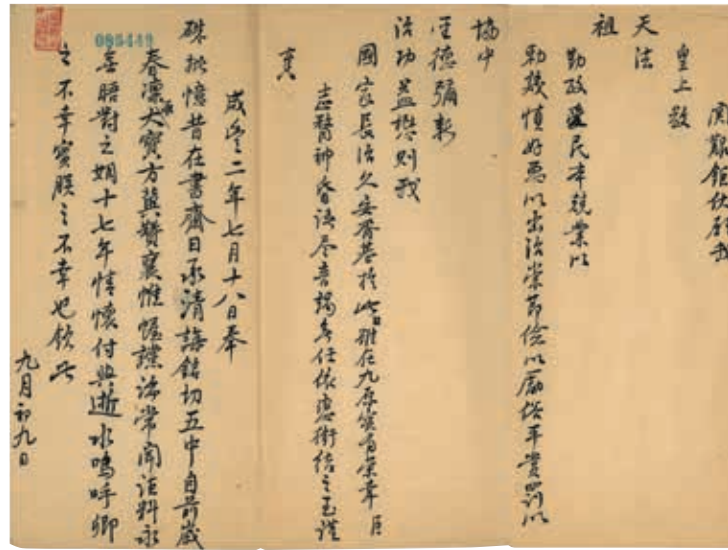 關艱鉅伏願我
皇上敬
天法
祖
勤政愛民本兢業以
勅幾慎好惡以出治崇節儉以勵俗平賞罰以
協中
聖德彌新
治功益懋則我
國家長治久安胥基於此臣雖在九原實有榮幸臣
志瞀神昏語尽音謁無任依戀銜結之至謹
奏
咸豐二年七月十八日奉
硃批憶昔在書齋日承清誨銘切五中自前歲
春凜承大寶方冀贊襄帷幄讜論常聞詎料永
無晤對之期十七年情懷付與逝水嗚呼卿
之不幸實朕之不幸也欽此
九月初九日